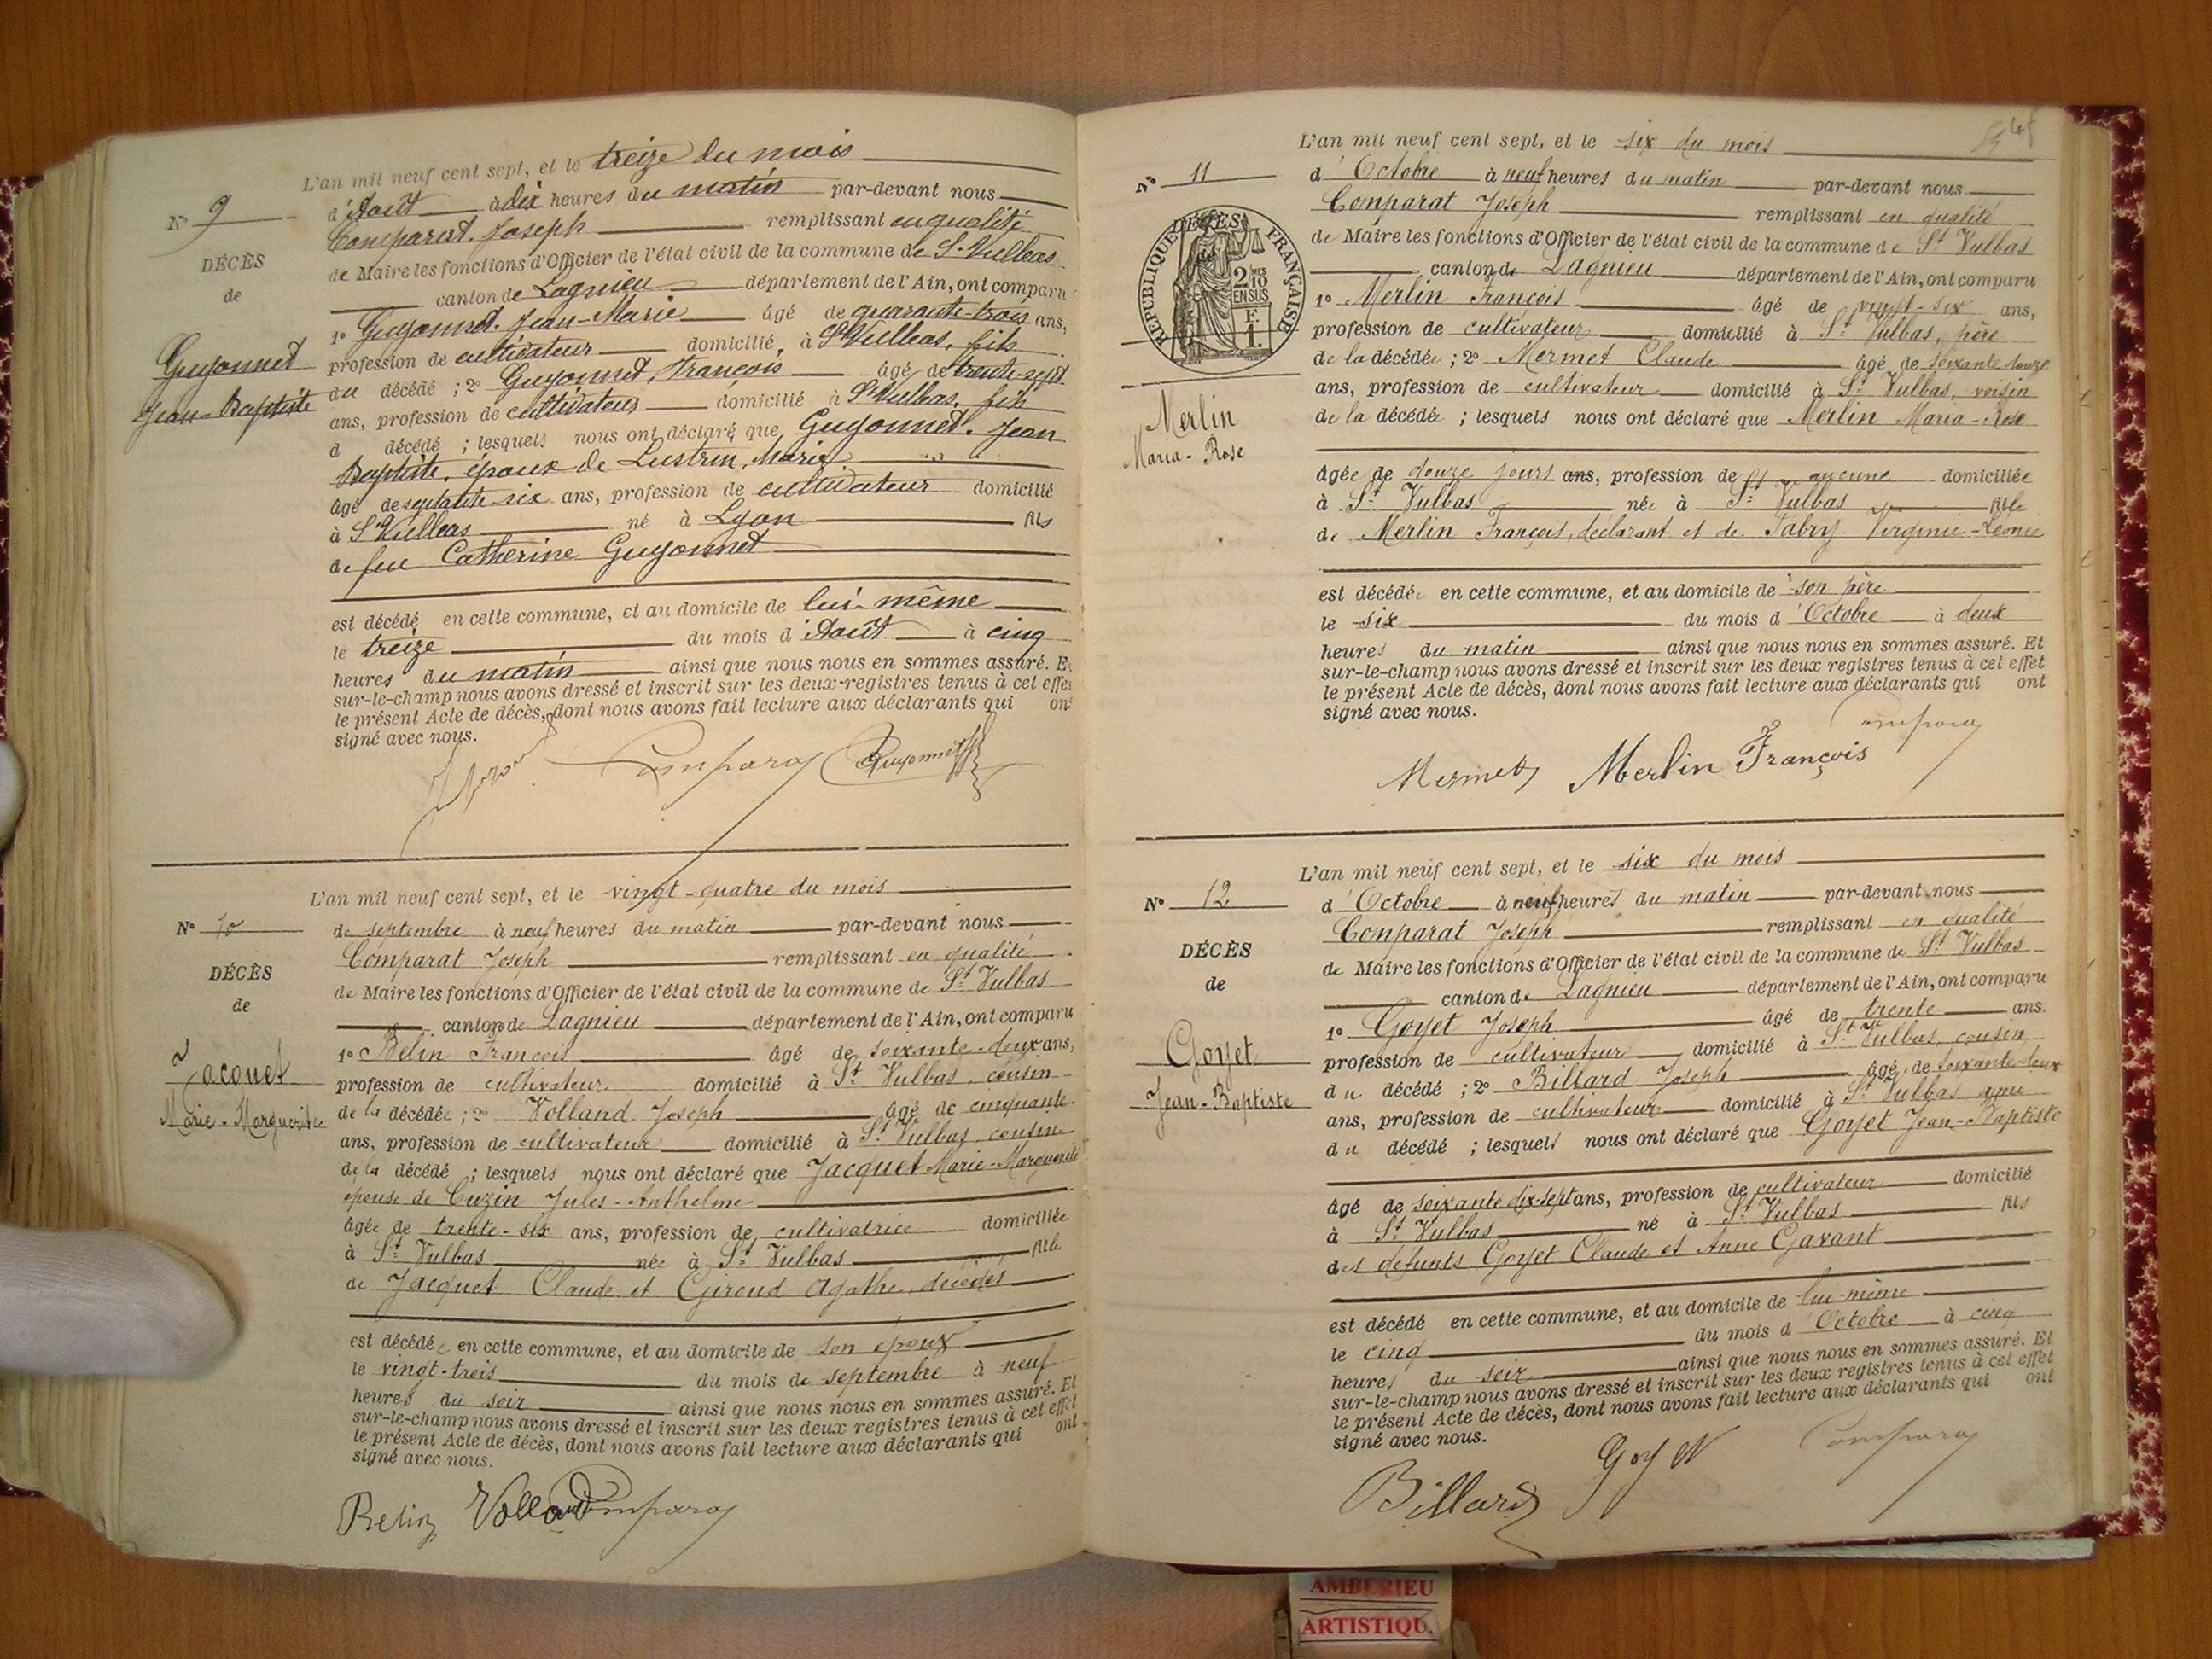 L'an mil neuf cent sept, et le treize du mois
N° 9
d'Août à dix heures du matin par-devant nous
Comparat Joseph remplissant en qualité
DÉCÈS
de Maire les fonctions d'Officier de l'état civil de la commune de St Vulbas
de
canton de Lagnieu département de l'Ain, ont comparu
1° Guyonnet Jean-Marie âgé de quarante-trois ans,
Guyonnet
profession de cultivateur domicilié à St Vulbas, fils
Jean-Baptiste
du décédé ; 2° Guyonnet, François âgé de trente-sept
ans, profession de cultivateur domicilié à St Vulbas, fils
d décédé ; lesquels nous ont déclaré que Guyonnet Jean
Baptiste, époux de Lustrin, Marie
âgé de septante-six ans, profession de cultivateur domicilié
à St Vulbas né à Lyon fils
de feu Catherine Guyonnet
est décédé en cette commune, et au domicile de lui-même
le treize du mois d'Août à cinq
heures du matin ainsi que nous nous en sommes assuré. Et
sur-le-champ nous avons dressé et inscrit sur les deux registres tenus à cet effet
le présent Acte de décès, dont nous avons fait lecture aux déclarants qui ont
signé avec nous.
Comparat Guyonnet
L'an mil neuf cent sept, et le vingt-quatre du mois
N° 10
de septembre à neuf heures du matin par-devant nous
Comparat Joseph remplissant en qualité
DÉCÈS
de Maire les fonctions d'Officier de l'état civil de la commune de St Vulbas
de
canton de Lagnieu département de l'Ain, ont comparu
1° Belin François âgé de soixante-deux ans,
Jacquet
profession de cultivateur domicilié à St Vulbas, cousin
Marie-Marguerite
de la décédée ; 2° Volland Joseph âgé de cinquante
ans, profession de cultivateur domicilié à St Vulbas, cousin
de la décédé ; lesquels nous ont déclaré que Jacquet Marie-Marguerite
épouse de Cuzin Jules-Anthelme
âgée de trente-six ans, profession de cultivatrice domiciliée
à St Vulbas née à St Vulbas fille
de Jacquet Claude et Giroud Agathe, décédés
est décédée en cette commune, et au domicile de son époux
le vingt-trois du mois de septembre à neuf
heures du soir ainsi que nous nous en sommes assuré. Et
sur-le-champ nous avons dressé et inscrit sur les deux registres tenus à cet effet
le présent Acte de décès, dont nous avons fait lecture aux déclarants qui ont
signé avec nous.
Belin Volland Comparat
L'an mil neuf cent sept, et le six du mois
N° 11
d'Octobre à neuf heures du matin par-devant nous
Comparat Joseph remplissant en qualité
de Maire les fonctions d'Officier de l'état civil de la commune de St Vulbas
RÉPUBLIQUE FRANÇAISE
2/10 EN SUS
F. 1.
canton de Lagnieu département de l'Ain, ont comparu
1° Merlin François âgé de vingt-six ans,
profession de cultivateur domicilié à St Vulbas, père
de la décédée ; 2° Mermet Claude âgé de soixante douze
ans, profession de cultivateur domicilié à St Vulbas, voisin
Merlin
Maria-Rose
de la décédé ; lesquels nous ont déclaré que Merlin Maria-Rose
âgée de douze jours ans, profession de aucune domiciliée
à St Vulbas née à St Vulbas fille
de Merlin François, déclarant et de Fabry Virginie-Léonie
est décédée en cette commune, et au domicile de son père
le six du mois d'Octobre à deux
heures du matin ainsi que nous nous en sommes assuré. Et
sur-le-champ nous avons dressé et inscrit sur les deux registres tenus à cet effet
le présent Acte de décès, dont nous avons fait lecture aux déclarants qui ont
signé avec nous.
Comparat
Mermet Merlin François
L'an mil neuf cent sept, et le six du mois
N° 12
d'Octobre à neuf heures du matin par-devant nous
Comparat Joseph remplissant en qualité
DÉCÈS
de Maire les fonctions d'Officier de l'état civil de la commune de St Vulbas
de
canton de Lagnieu département de l'Ain, ont comparu
1° Goyet Joseph âgé de trente ans.
Goyet
profession de cultivateur domicilié à St Vulbas, cousin
Jean-Baptiste
du décédé ; 2° Billard Joseph âgé de soixante-deux
ans, profession de cultivateur domicilié à St Vulbas, ami
du décédé ; lesquels nous ont déclaré que Goyet Jean-Baptiste
âgé de soixante dix-sept ans, profession de cultivateur domicilié
à St Vulbas né à St Vulbas fils
des défunts Goyet Claude et Anne Gavant
est décédé en cette commune, et au domicile de lui-même
le cinq du mois d'Octobre à cinq
heures du soir ainsi que nous nous en sommes assuré. Et
sur-le-champ nous avons dressé et inscrit sur les deux registres tenus à cet effet
le présent Acte de décès, dont nous avons fait lecture aux déclarants qui ont
signé avec nous.
Billard Goyet Comparat
AMBERIEU
ARTISTIQU.